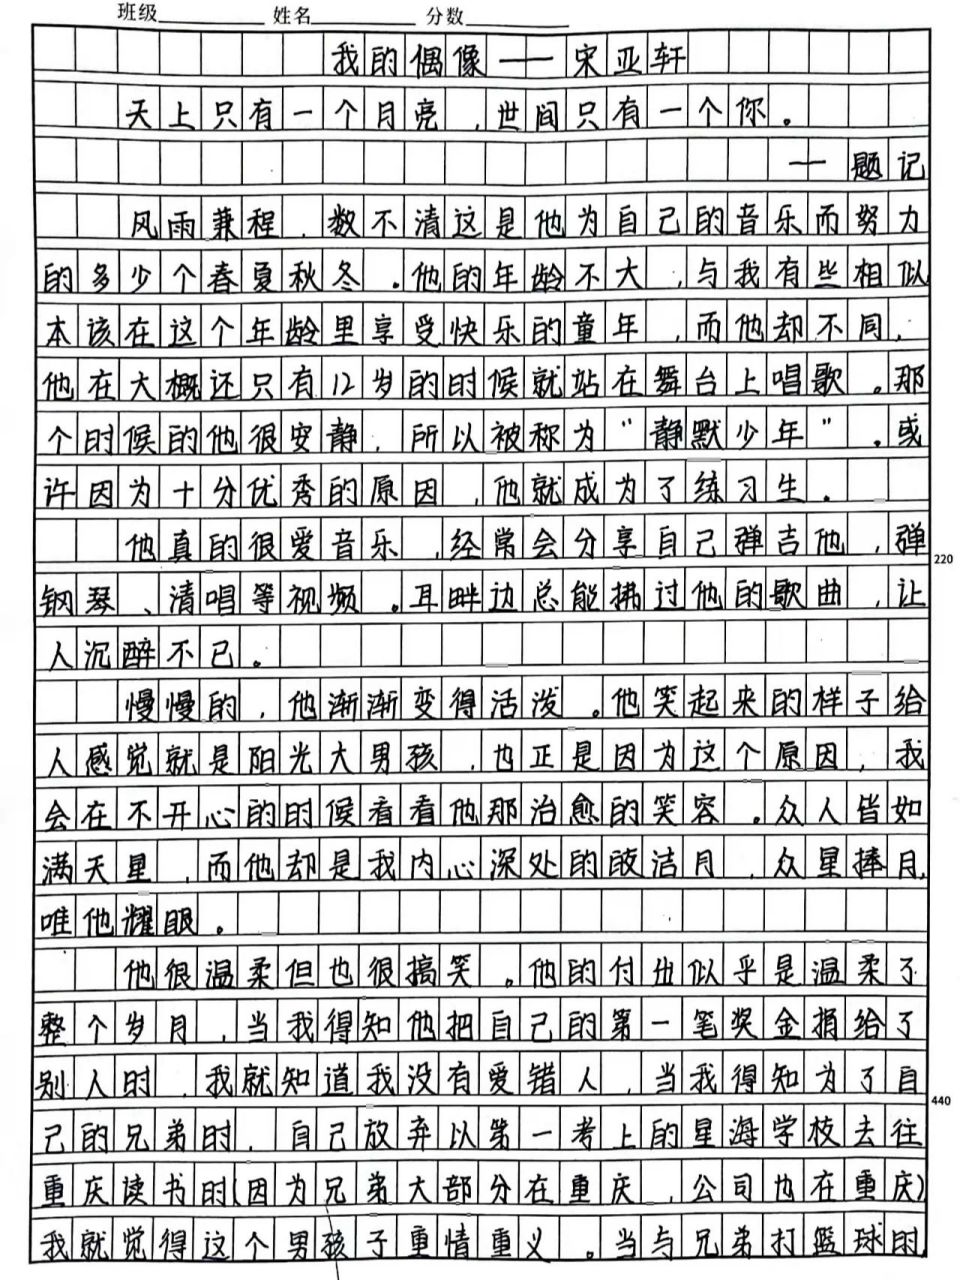 班级 姓名 分数
我的偶像——宋亚轩
天上只有一个月亮,世间只有一个你。
——题记
风雨兼程,数不清这是他为自己的音乐而努力
的多少个春夏秋冬。他的年龄不大,与我有些相似
本该在这个年龄里享受快乐的童年,而他却不同,
他在大概还只有12岁的时候就站在舞台上唱歌。那
个时候的他很安静,所以被称为“静默少年”。或
许因为十分优秀的原因,他就成为了练习生。
他真的很爱音乐,经常会分享自己弹吉他,弹
220
钢琴、清唱等视频。耳畔边总能拂过他的歌曲,让
人沉醉不已。
慢慢的,他渐渐变得活泼。他笑起来的样子给
人感觉就是阳光大男孩,也正是因为这个原因,我
会在不开心的时候看看他那治愈的笑容。众人皆如
满天星,而他却是我内心深处的皎洁月,众星捧月,
唯他耀眼。
他很温柔但也很搞笑。他的付出似乎是温柔了
整个岁月,当我得知他把自己的第一笔奖金捐给了
别人时,我就知道我没有爱错人,当我得知为了自
440
己的兄弟时,自己放弃以第一考上的星海学校去往
重庆读书时(因为兄弟大部分在重庆,公司也在重庆)
我就觉得这个男孩子重情重义。当与兄弟打篮球时,